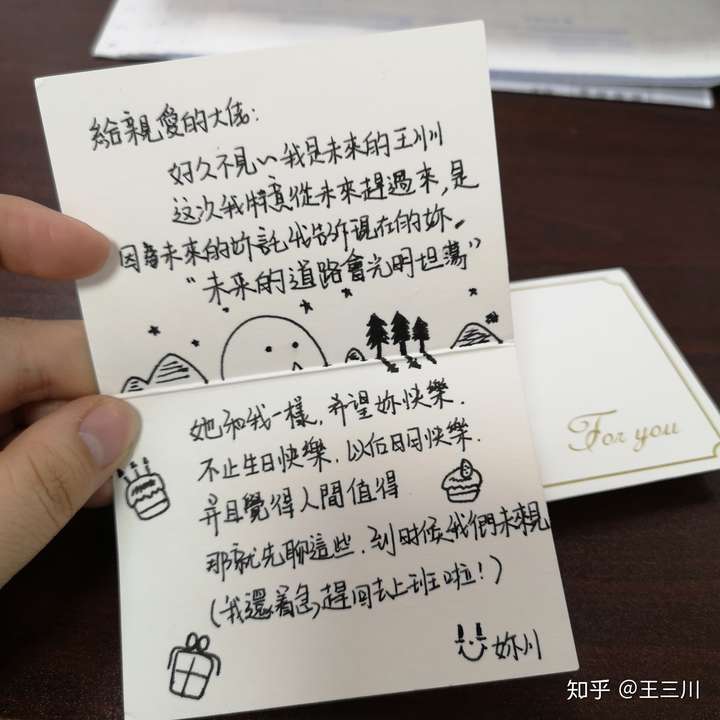 給親愛的大佬:
好久不見~我是未來的王川
這次我特意從未來趕過來,是
因為未來的妳託我告訴現在的妳。
“未來的道路會光明坦蕩”
她和我一樣,希望妳快樂.
不止生日快樂.以后日日快樂.
并且覺得人間值得
那就先聊這些.到时候我們未來見
(我還着急趕回去上班啦!)
妳川
For you
知乎 @王三川